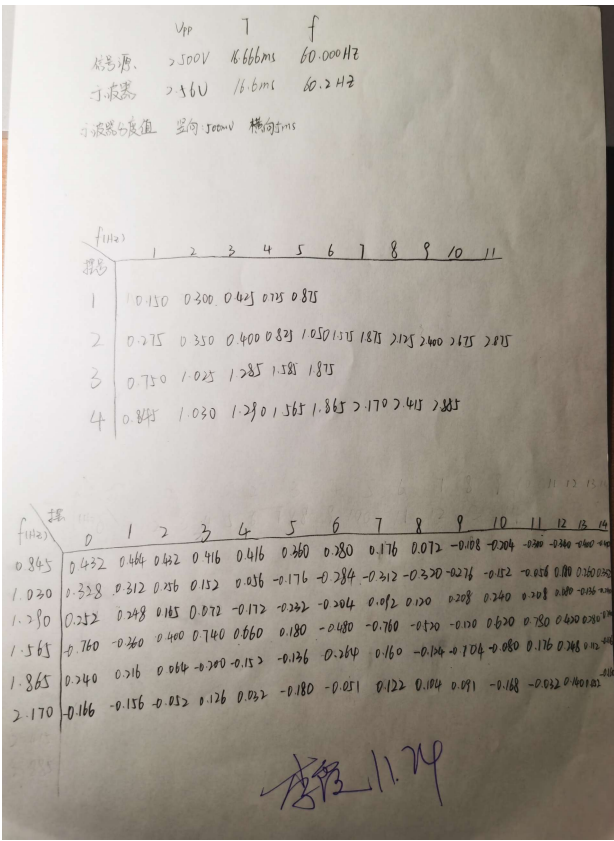 Vpp T f
信号源 2.500V 16.666ms 60.000HZ
示波器 2.56V 16.6ms 60.2HZ
示波器分度值 竖向:500mV 横向5ms
f(Hz) 1 2 3 4 5 6 7 8 9 10 11
1 0.150 0.300 0.425 0.725 0.875
2 0.275 0.350 0.400 0.825 1.050 1.575 1.875 2.125 2.400 2.675 2.875
3 0.750 1.025 1.285 1.585 1.875
4 0.845 1.030 1.290 1.565 1.865 2.170 2.415 2.885
f(Hz) 0 1 2 3 4 5 6 7 8 9 10 11 12 13 14
0.845 0.432 0.464 0.432 0.416 0.416 0.360 0.280 0.176 0.072 -0.108 -0.204 -0.300 -0.400
1.030 0.328 0.312 0.256 0.152 0.056 -0.176 -0.284 -0.312 -0.320 -0.276 -0.152 -0.056 0.180 0.260
1.290 0.252 0.248 0.165 0.072 -0.172 -0.232 -0.204 0.092 0.120 0.208 0.240 0.208 0.180 -0.136
1.565 -0.760 -0.360 0.400 0.740 0.660 0.180 -0.480 -0.760 -0.520 -0.120 0.620 0.780 0.420
1.865 0.240 0.216 0.064 -0.200 -0.152 -0.136 0.264 0.160 -0.124 -0.080 0.176 0.248 0.112
2.170 -0.166 -0.156 -0.052 0.126 0.032 -0.180 -0.051 0.122 0.104 0.091 -0.168 -0.032 0.140
11.24